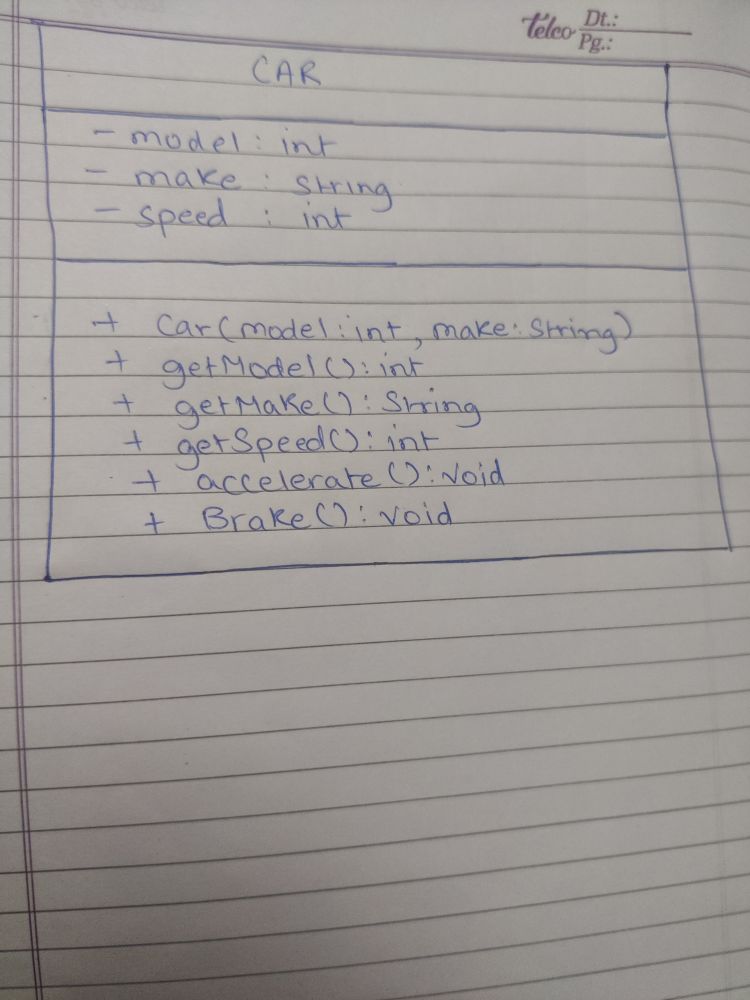 Telco Dt.:
Pg.:
CAR
- model : int
- make : String
- speed : int
+ Car(model:int, make:String)
+ getModel():int
+ getMake():String
+ getSpeed():int
+ accelerate():void
+ Brake():void